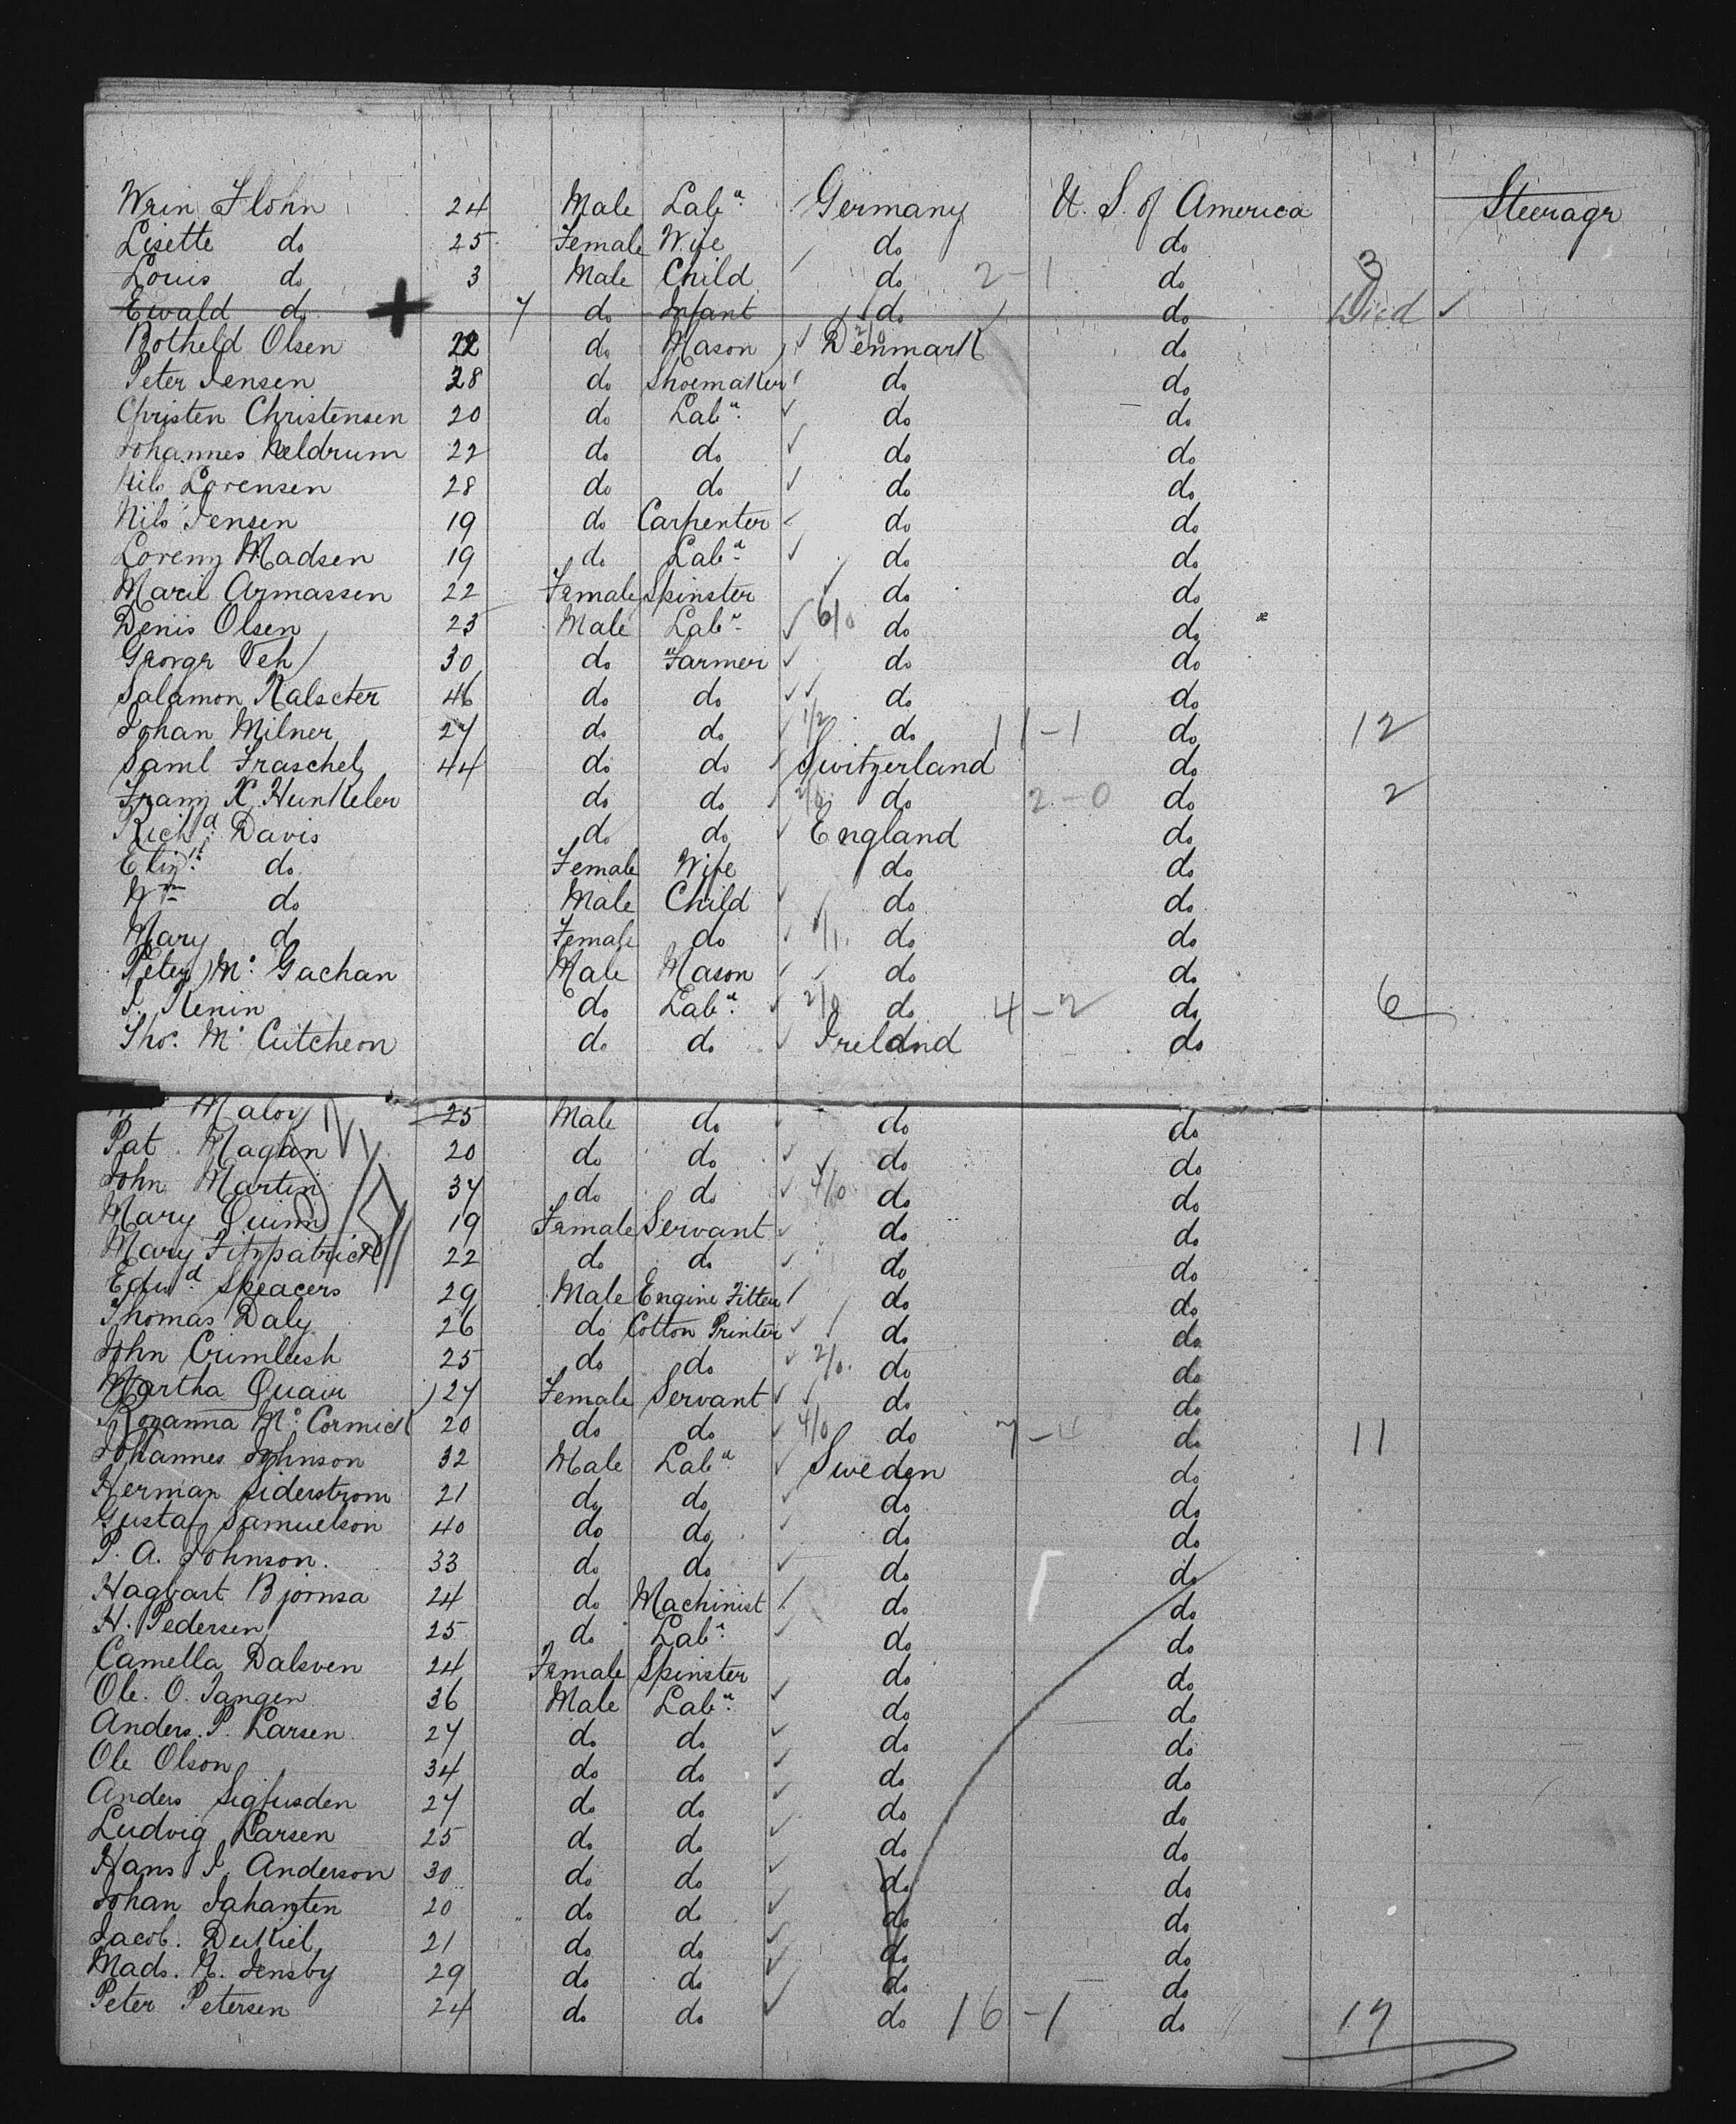 Wrin Flohn 24 Male Labr. Germany U. S. of America Steerage
Lisette do 25 Female Wife do do
Louis do 3 Male Child do 2-1 do 3
Ewald do 7 do Infant do do Died
Botheld Olsen 22 do Mason 2/0 Denmark do
Peter Jensen 28 do Shoemaker do do
Christen Christensen 20 do Labr. do do
Johannes Keldrum 22 do do do do
Nils Lorensen 28 do do do do
Nils Jensen 19 do Carpenter do do
Lorenz Madsen 19 do Labr. do do
Maril Armassen 22 Female Spinster do do
Denis Olsen 23 Male Labr. 6/0 do do
George Veh 30 do Farmer do do
Salamon Kalscter 46 do do do do
Johan Milner 27 do do 1/2 do 11-1 do 12
Saml Fraschel 44 do do Switzerland do
Franz X Hunkeler do do 2/0 do 2-0 do 2
Richd. Davis do do England do
Elizth. do Female Wife do do
Wm do Male Child do do
Mary do Female do 1/1 do do
Peter Mc Gachan Male Mason do do
J. Kenin do Labr. 2/0 do 4-2 do 6
Thos. Mc Cutcheon do do Ireland do
Maloy 25 Male do do do
Pat Magan 20 do do do do
John Martin 37 do do 4/0 do do
Mary Quinn 19 Female Servant do do
Mary Fitzpatrick 22 do do do do
Edwd. Speacers 29 Male Engine Fitter do do
Thomas Daly 26 do Cotton Printer do do
John Crimleish 25 do do 2/0 do do
Martha Quair 27 Female Servant do do
Rozanna Mc Cormick 20 do do 4/0 do 7-4 do 11
Johannes Johnson 32 Male Labr. Sweden do
Herman Siderstrom 21 do do do do
Gustaf Samuelson 40 do do do do
P. A. Johnson 33 do do do do
Hagbart Bjornsa 24 do Machinist do do
H. Pedersen 25 do Labr. do do
Camella Dalsven 24 Female Spinster do do
Ole. O. Tangen 36 Male Labr. do do
Anders. P. Larsen 27 do do do do
Ole Olson 34 do do do do
Anders Sigfusden 27 do do do do
Ludvig Larsen 25 do do do do
Hans J. Anderson 30 do do do do
Johan Jahanten 20 do do do do
Jacob. Dukiel 21 do do do do
Mads. N. Jensby 29 do do do do
Peter Petersen 24 do do do 16-1 do 17